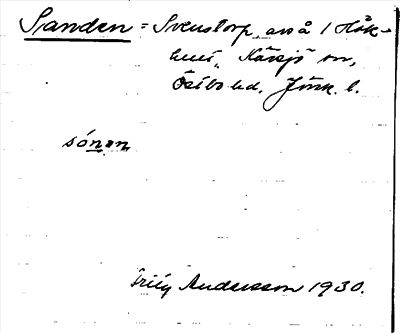 Sanden = Svenstorp, avs å 1 Hök-
hult, Kävsjö sn,
Östbo hd. Jönk. l.
sónən
Frity Andersson 1930.